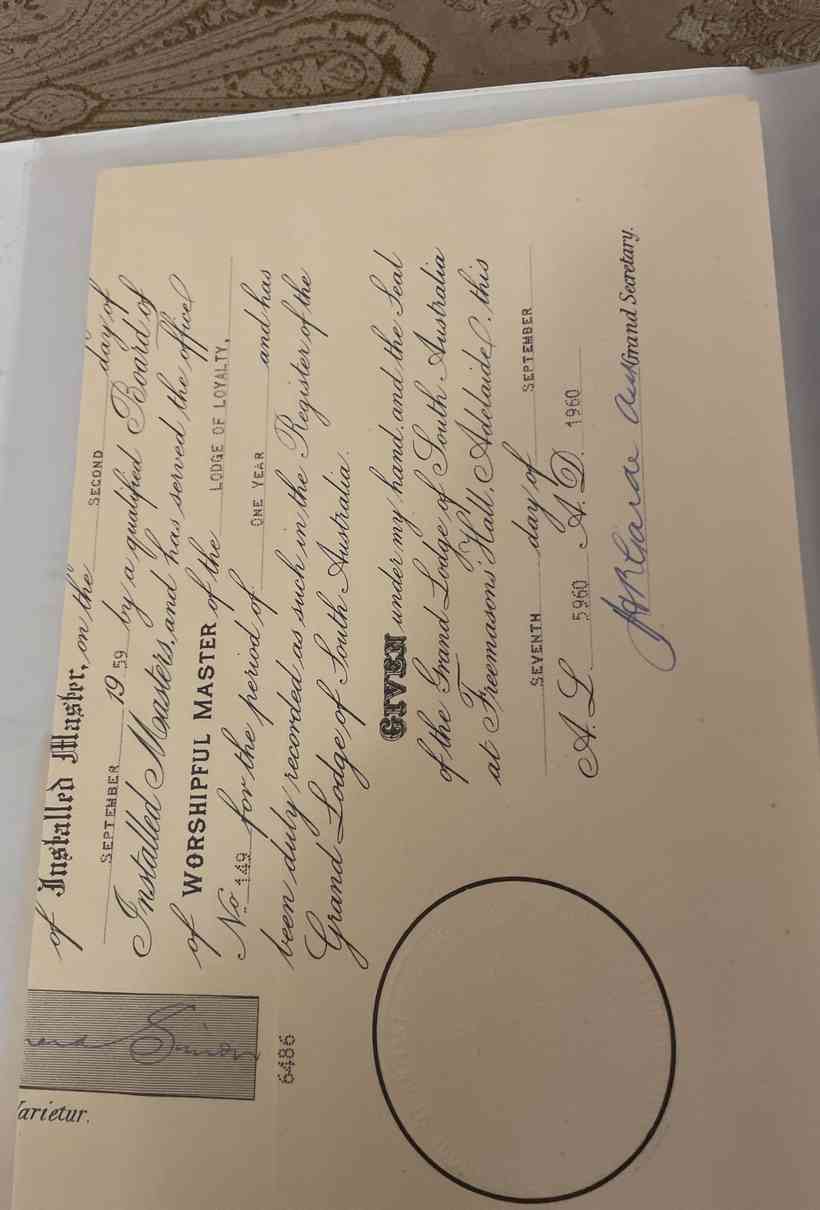 of Installed Master, on the SECOND day of
SEPTEMBER 19 59 by a qualified Board of
Installed Masters, and has served the office
of WORSHIPFUL MASTER of the LODGE OF LOYALTY,
No. 149 for the period of ONE YEAR and has
been duly recorded as such in the Register of the
Grand Lodge of South Australia.
GIVEN under my hand and the Seal
of the Grand Lodge of South Australia
at Freemasons' Hall, Adelaide, this
SEVENTH day of SEPTEMBER
A.L. 5960 A.D. 1960
Grand Secretary.
Simon
Varietur.
6486